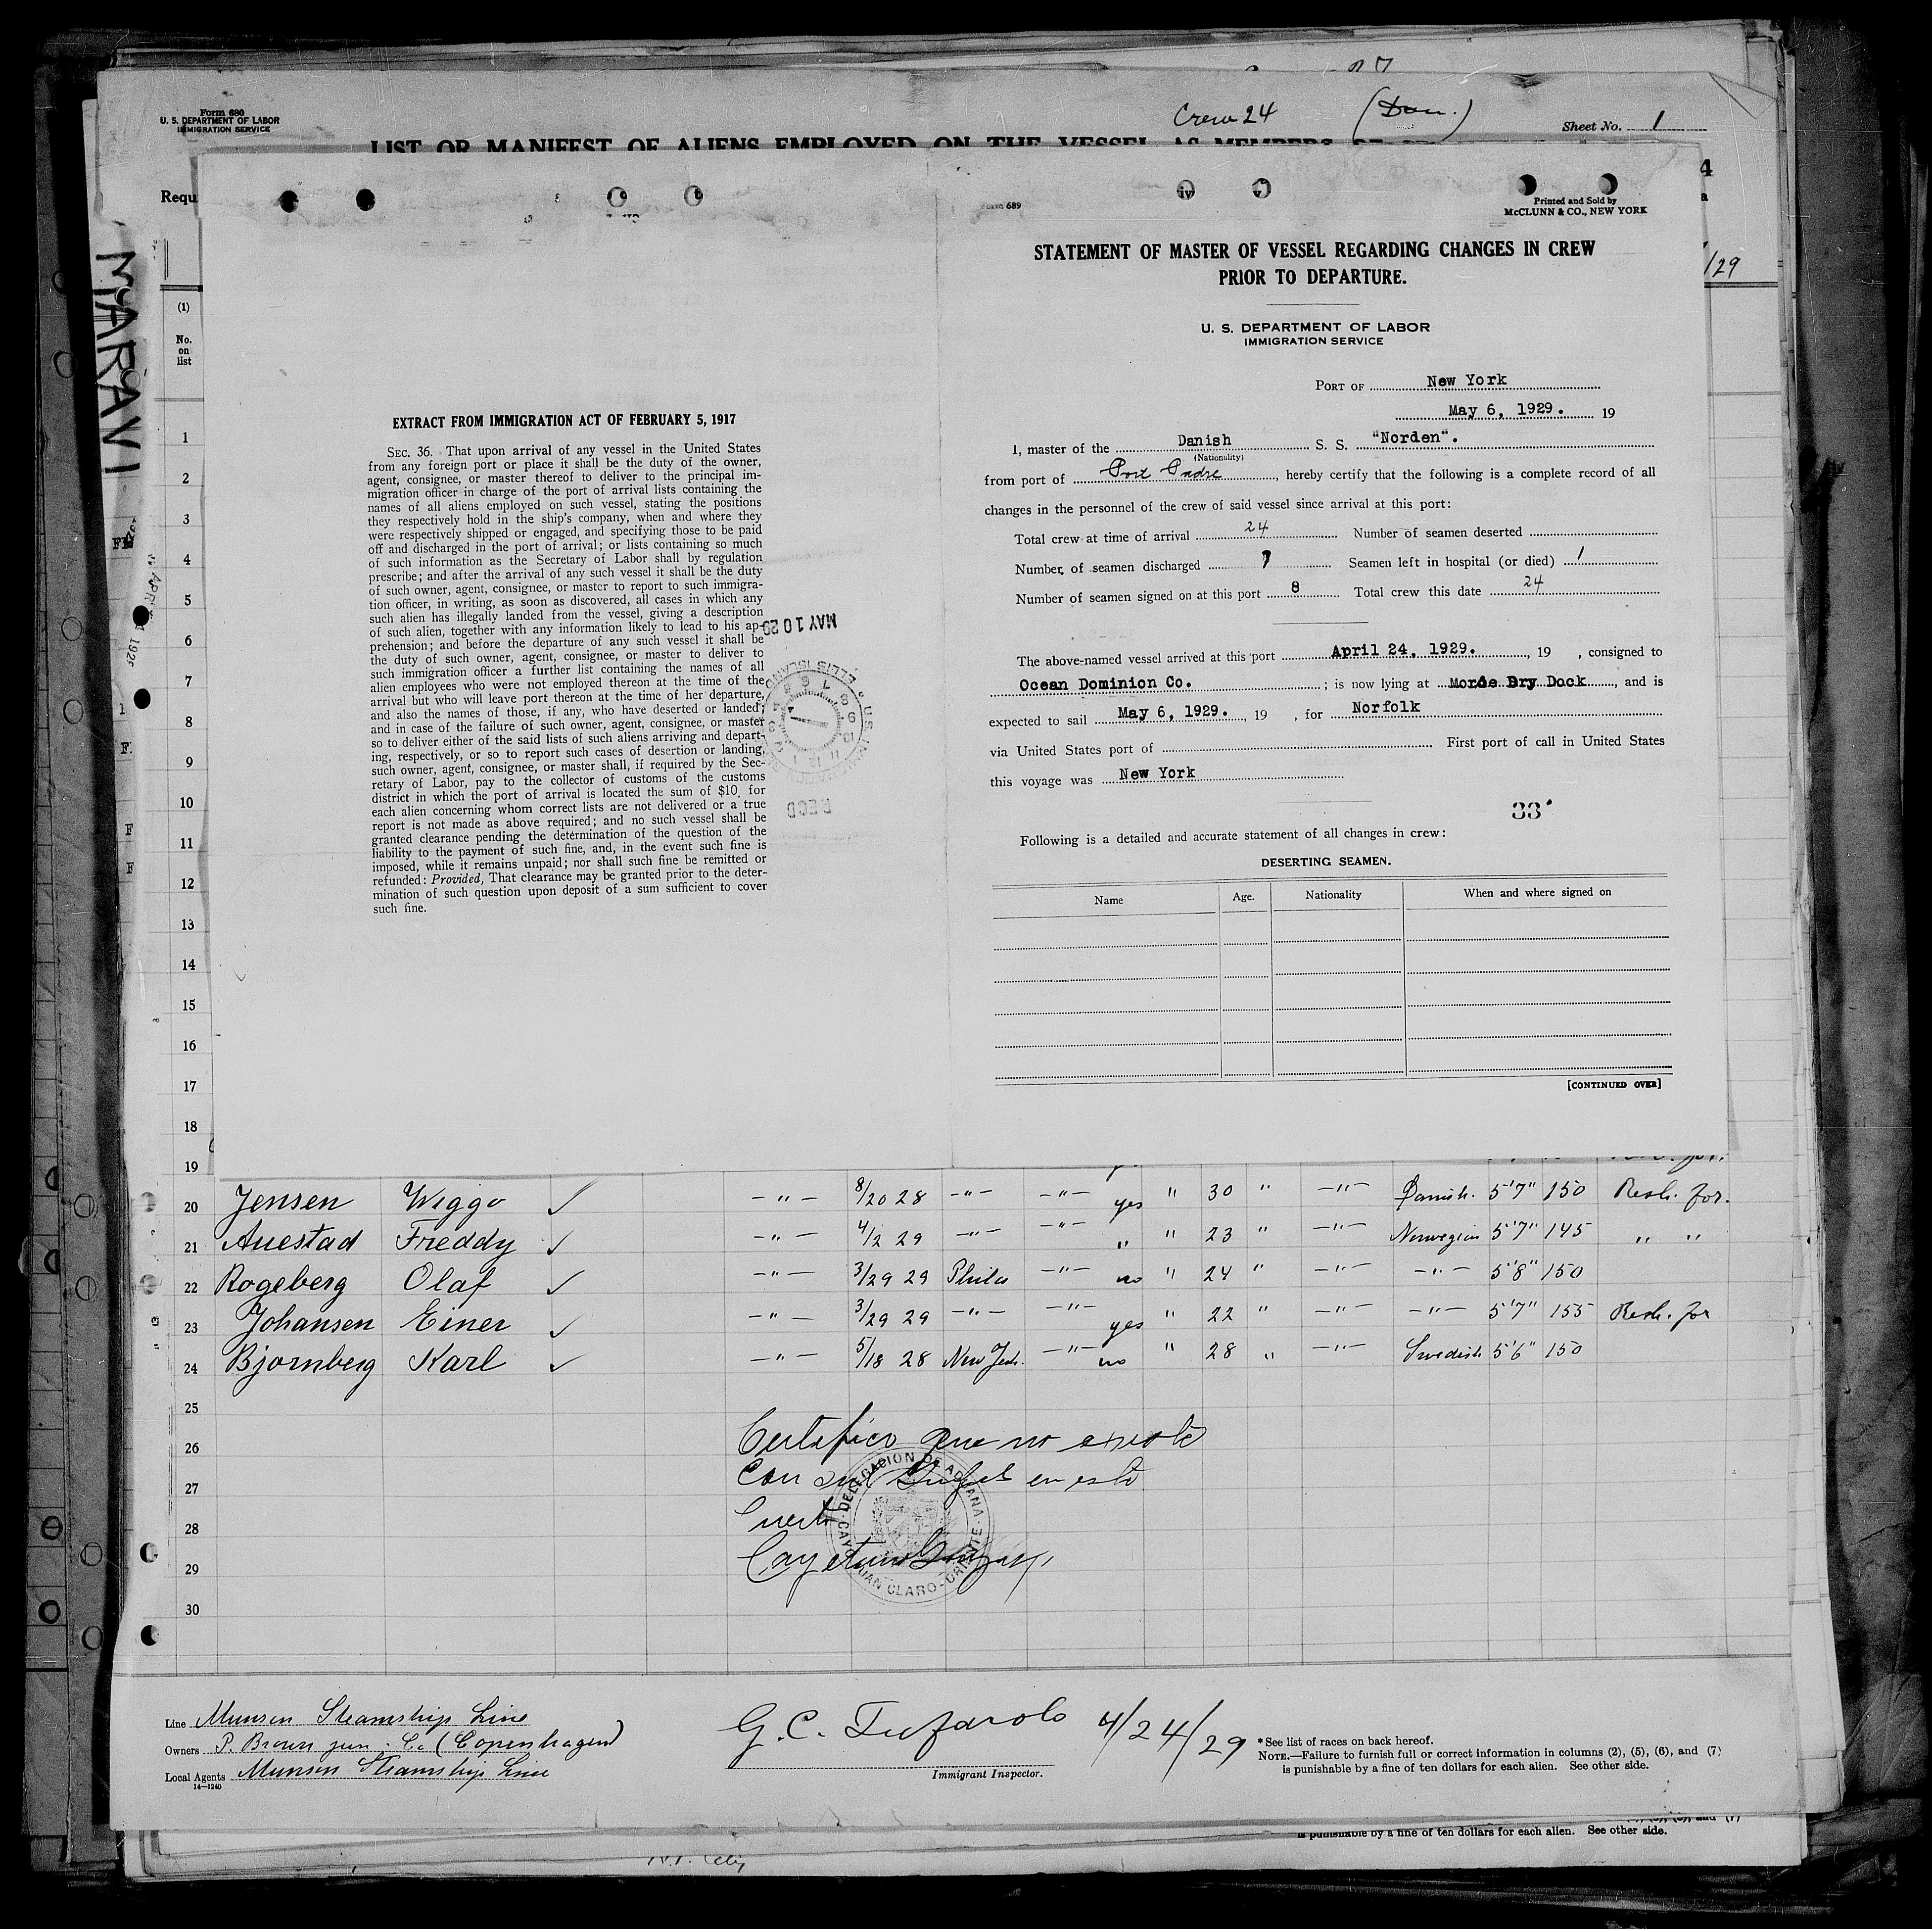 Form 680
U. S. DEPARTMENT OF LABOR
IMMIGRATION SERVICE
Crew 24 (Dan.)
Sheet No. 1
LIST OR MANIFEST OF ALIENS EMPLOYED ON THE VESSEL AS MEMBERS OF
4
Requ
/29
MARAVI
(1)
No.
on
list
1
2
3
4
5
6
7
8
9
10
11
12
13
14
15
16
17
18
19
EXTRACT FROM IMMIGRATION ACT OF FEBRUARY 5, 1917
SEC. 36. That upon arrival of any vessel in the United States
from any foreign port or place it shall be the duty of the owner,
agent, consignee, or master thereof to deliver to the principal im-
migration officer in charge of the port of arrival lists containing the
names of all aliens employed on such vessel, stating the positions
they respectively hold in the ship's company, when and where they
were respectively shipped or engaged, and specifying those to be paid
off and discharged in the port of arrival; or lists containing so much
of such information as the Secretary of Labor shall by regulation
prescribe; and after the arrival of any such vessel it shall be the duty
of such owner, agent, consignee, or master to report to such immigra-
tion officer, in writing, as soon as discovered, all cases in which any
such alien has illegally landed from the vessel, giving a description
of such alien, together with any information likely to lead to his ap-
prehension; and before the departure of any such vessel it shall be
the duty of such owner, agent, consignee, or master to deliver to
such immigration officer a further list containing the names of all
alien employees who were not employed thereon at the time of the
arrival but who will leave port thereon at the time of her departure,
and also the names of those, if any, who have deserted or landed;
and in case of the failure of such owner, agent, consignee, or master
so to deliver either of the said lists of such aliens arriving and depart-
ing, respectively, or so to report such cases of desertion or landing,
such owner, agent, consignee, or master shall, if required by the Sec-
retary of Labor, pay to the collector of customs of the customs
district in which the port of arrival is located the sum of $10 for
each alien concerning whom correct lists are not delivered or a true
report is not made as above required; and no such vessel shall be
granted clearance pending the determination of the question of the
liability to the payment of such fine, and, in the event such fine is
imposed, while it remains unpaid; nor shall such fine be remitted or
refunded: Provided, That clearance may be granted prior to the deter-
mination of such question upon deposit of a sum sufficient to cover
such fine.
MAY 10 29
ELLIS ISLAND
RECD
Form 689
Printed and Sold by
McCLUNN & CO., NEW YORK
STATEMENT OF MASTER OF VESSEL REGARDING CHANGES IN CREW
PRIOR TO DEPARTURE.
U. S. DEPARTMENT OF LABOR
IMMIGRATION SERVICE
PORT OF New York
May 6, 1929. 19
I, master of the Danish S. S. "Norden".
(Nationality)
from port of Port Padre, hereby certify that the following is a complete record of all
changes in the personnel of the crew of said vessel since arrival at this port:
Total crew at time of arrival 24 Number of seamen deserted
Number of seamen discharged 7 Seamen left in hospital (or died) 1
Number of seamen signed on at this port 8 Total crew this date 24
The above-named vessel arrived at this port April 24, 1929., 19 , consigned to
Ocean Dominion Co. ; is now lying at Morde Dry Dock, and is
expected to sail May 6, 1929. 19 , for Norfolk
via United States port of First port of call in United States
this voyage was New York
33
Following is a detailed and accurate statement of all changes in crew:
DESERTING SEAMEN.
Name Age. Nationality When and where signed on
[CONTINUED OVER]
20 Jensen Wiggo ✓ –"– 8/20 28 –"– –"– yes " 30 " –"– Danish. 5'7" 150 Resh. for.
21 Auestad Freddy ✓ –"– 4/2 29 –"– –"– " " 23 " –"– Norwegian 5'7" 145 " "
22 Rogeberg Olaf ✓ –"– 3/29 29 Phila –"– no " 24 " –"– –"– 5'8" 150
23 Johansen Einer ✓ –"– 3/29 29 –"– –"– yes " 22 " –"– –"– 5'7" 155 Resh. for
24 Bjornberg Karl ✓ –"– 5/18 28 New York. –"– no " 28 " –"– Swedish 5'6" 150
25
26 Certifico que no existe
27 en este
28
29 Cayetano
30
DELEGACION DE ADUANA
CAYO JUAN CLARO - ORIENTE
Line Munson Steamship Line
Owners P. Brown jun. Co (Copenhagen)
Local Agents Munson Steamship Line
14—1240
G. C. Tufarolo 4/24/29
Immigrant Inspector.
*See list of races on back hereof.
NOTE.—Failure to furnish full or correct information in columns (2), (5), (6), and (7)
is punishable by a fine of ten dollars for each alien. See other side.
is punishable by a fine of ten dollars for each alien. See other side.